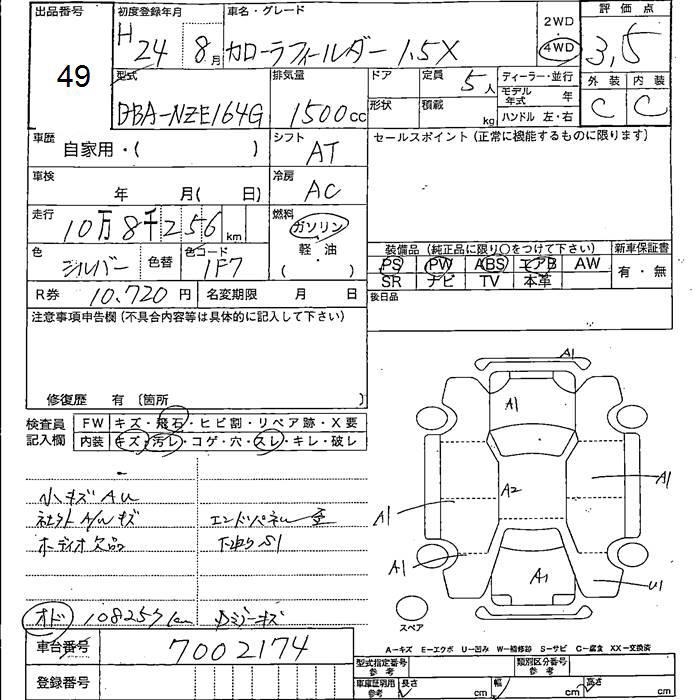 出品番号
49
初度登録年月
H 24 8月
車名・グレード
カローラフィールダー 1.5X
2WD
4WD
評価点
3,5
外装 内装
C C
型式
DBA-NZE164G
排気量
1500cc
ドア
定員 5人
形状
積載 kg
ディーラー・並行
モデル年式 年
ハンドル 左・右
車歴
自家用・( )
シフト
AT
セールスポイント (正常に機能するものに限ります)
車検
年 月( 日)
冷房
AC
走行
10万8千256km
燃料
ガソリン
軽・油
( )
色
シルバー
色替
色コード
1F7
装備品 (純正品に限り○をつけて下さい)
新車保証書
PS PW ABS エアB AW
SR ナビ TV 本革
有・無
R券 10,720円
名変期限 月 日
後日品
注意事項申告欄 (不具合内容等は具体的に記入して下さい)
修復歴 有 〔箇所 〕
検査員記入欄
FW キズ・飛石・ヒビ割・リペア跡・X要
内装 キズ・汚レ・コゲ・穴・スレ・キレ・破レ
小キズAU
社外A/Wキズ
オーディオ欠品
エンドパネル
下廻りS1
オド 108257km
車台番号 7002174
登録番号
A1
A1
A2
A1
A1
A1
A1
U1
スペア
A-キズ E-エクボ U-凹み W-補修跡 S-サビ C-腐食 XX-交換済
型式指定番号 参考
類別区分番号 参考
車庫証明用 参考
長さ cm
幅 cm
高さ cm